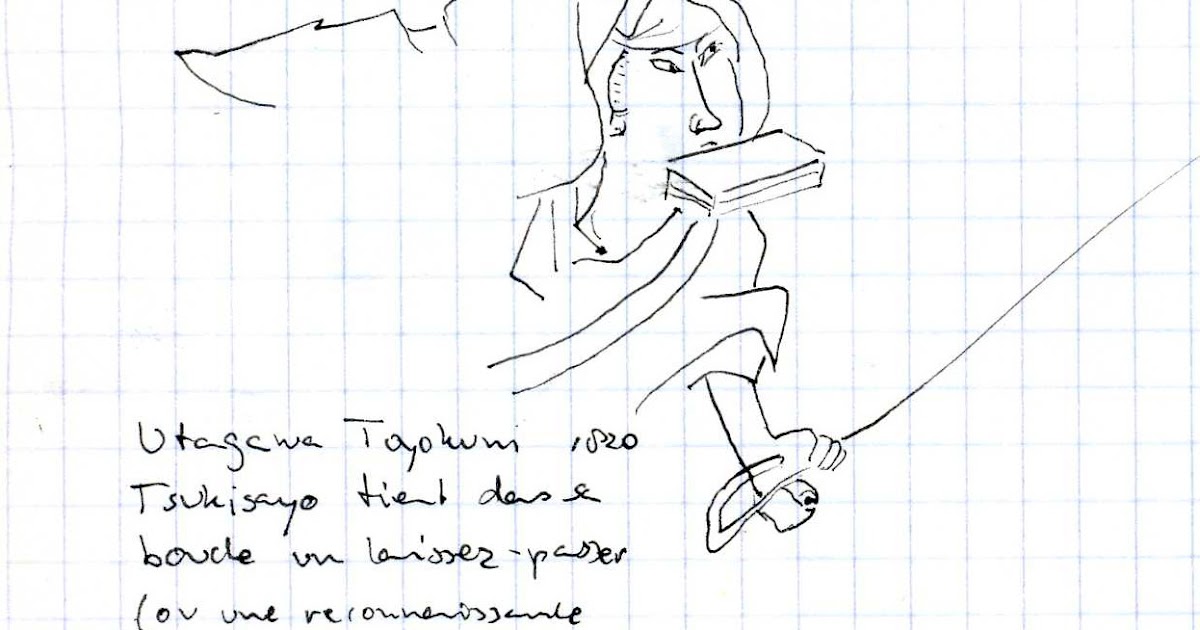 Utagawa Toyokuni 1820
Tsukisayo tient dans sa
bouche un laissez-passer
(ou une reconnaissance